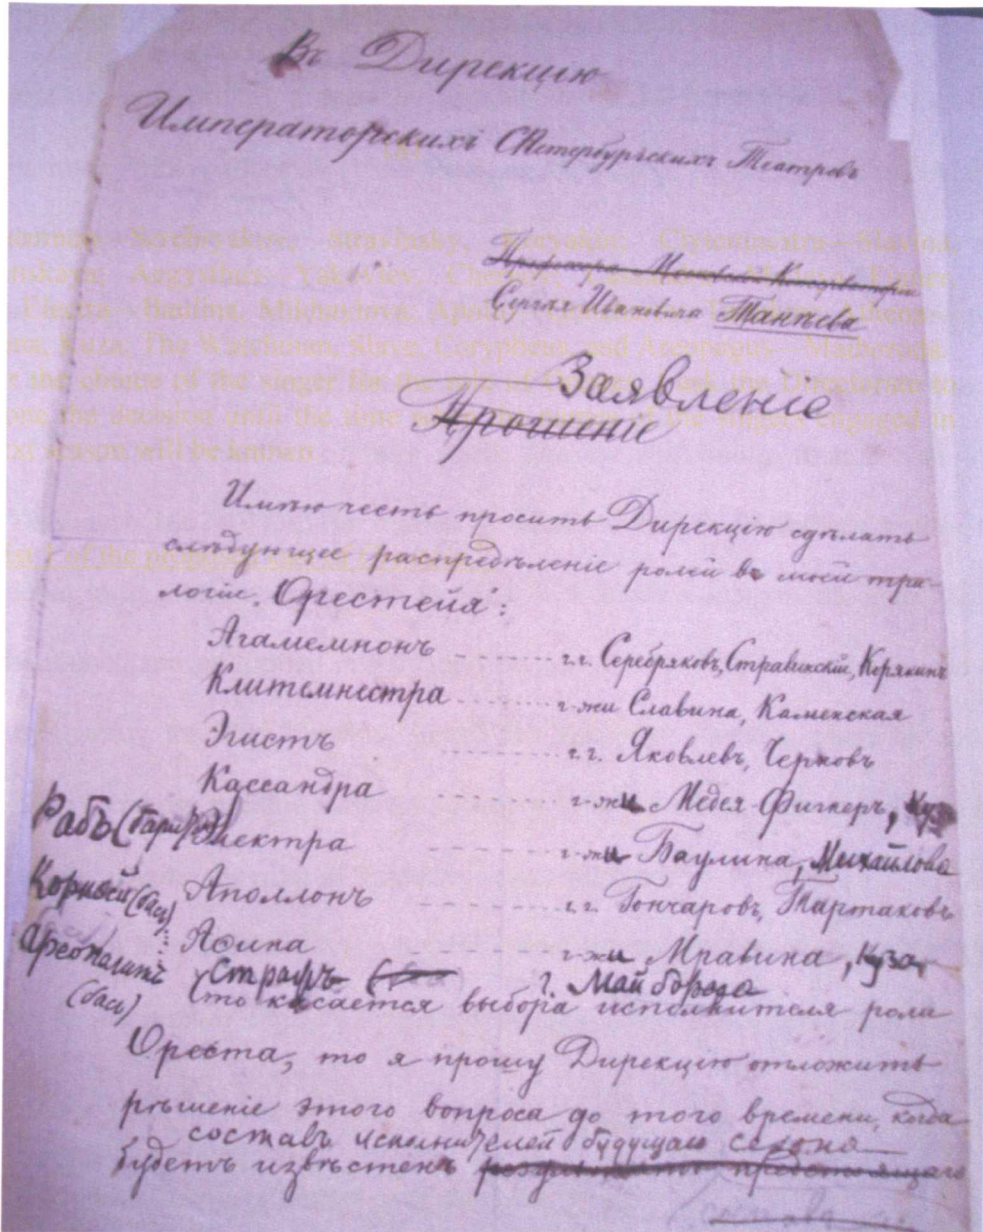 Въ Дирекцію
Императорскихъ СПетербургскихъ Театровъ
Профессора Московской Консерваторіи
Сергѣя Ивановича Танѣева
Заявленіе
Прошеніе
Имѣю честь просить Дирекцію сдѣлать
слѣдующее распредѣленіе ролей въ моей три-
логіи „Орестейя“:
Агамемнонъ ------- г.г. Серебряковъ, Стравинскій, Корякинъ
Клитемнестра ------- г-жи Славина, Каменская
Эгистъ ------- г.г. Яковлевъ, Черновъ
Кассандра ------- г-жи Медея-Фигнеръ, Куза
Рабъ (баритонъ) Электра ------- г-жи Баулина, Михайлова
Корифей (басъ) Аполлонъ ------- г.г. Гончаровъ, Тартаковъ
Ареопагитъ (басъ) Аѳина ------- г-жи Мравина, Куза
Стражъ г. Майборода
Что касается выбора исполнителя роли
Ореста, то я прошу Дирекцію отложить
рѣшеніе этого вопроса до того времени, когда
составъ исполнителей будущаго сезона
будетъ извѣстенъ